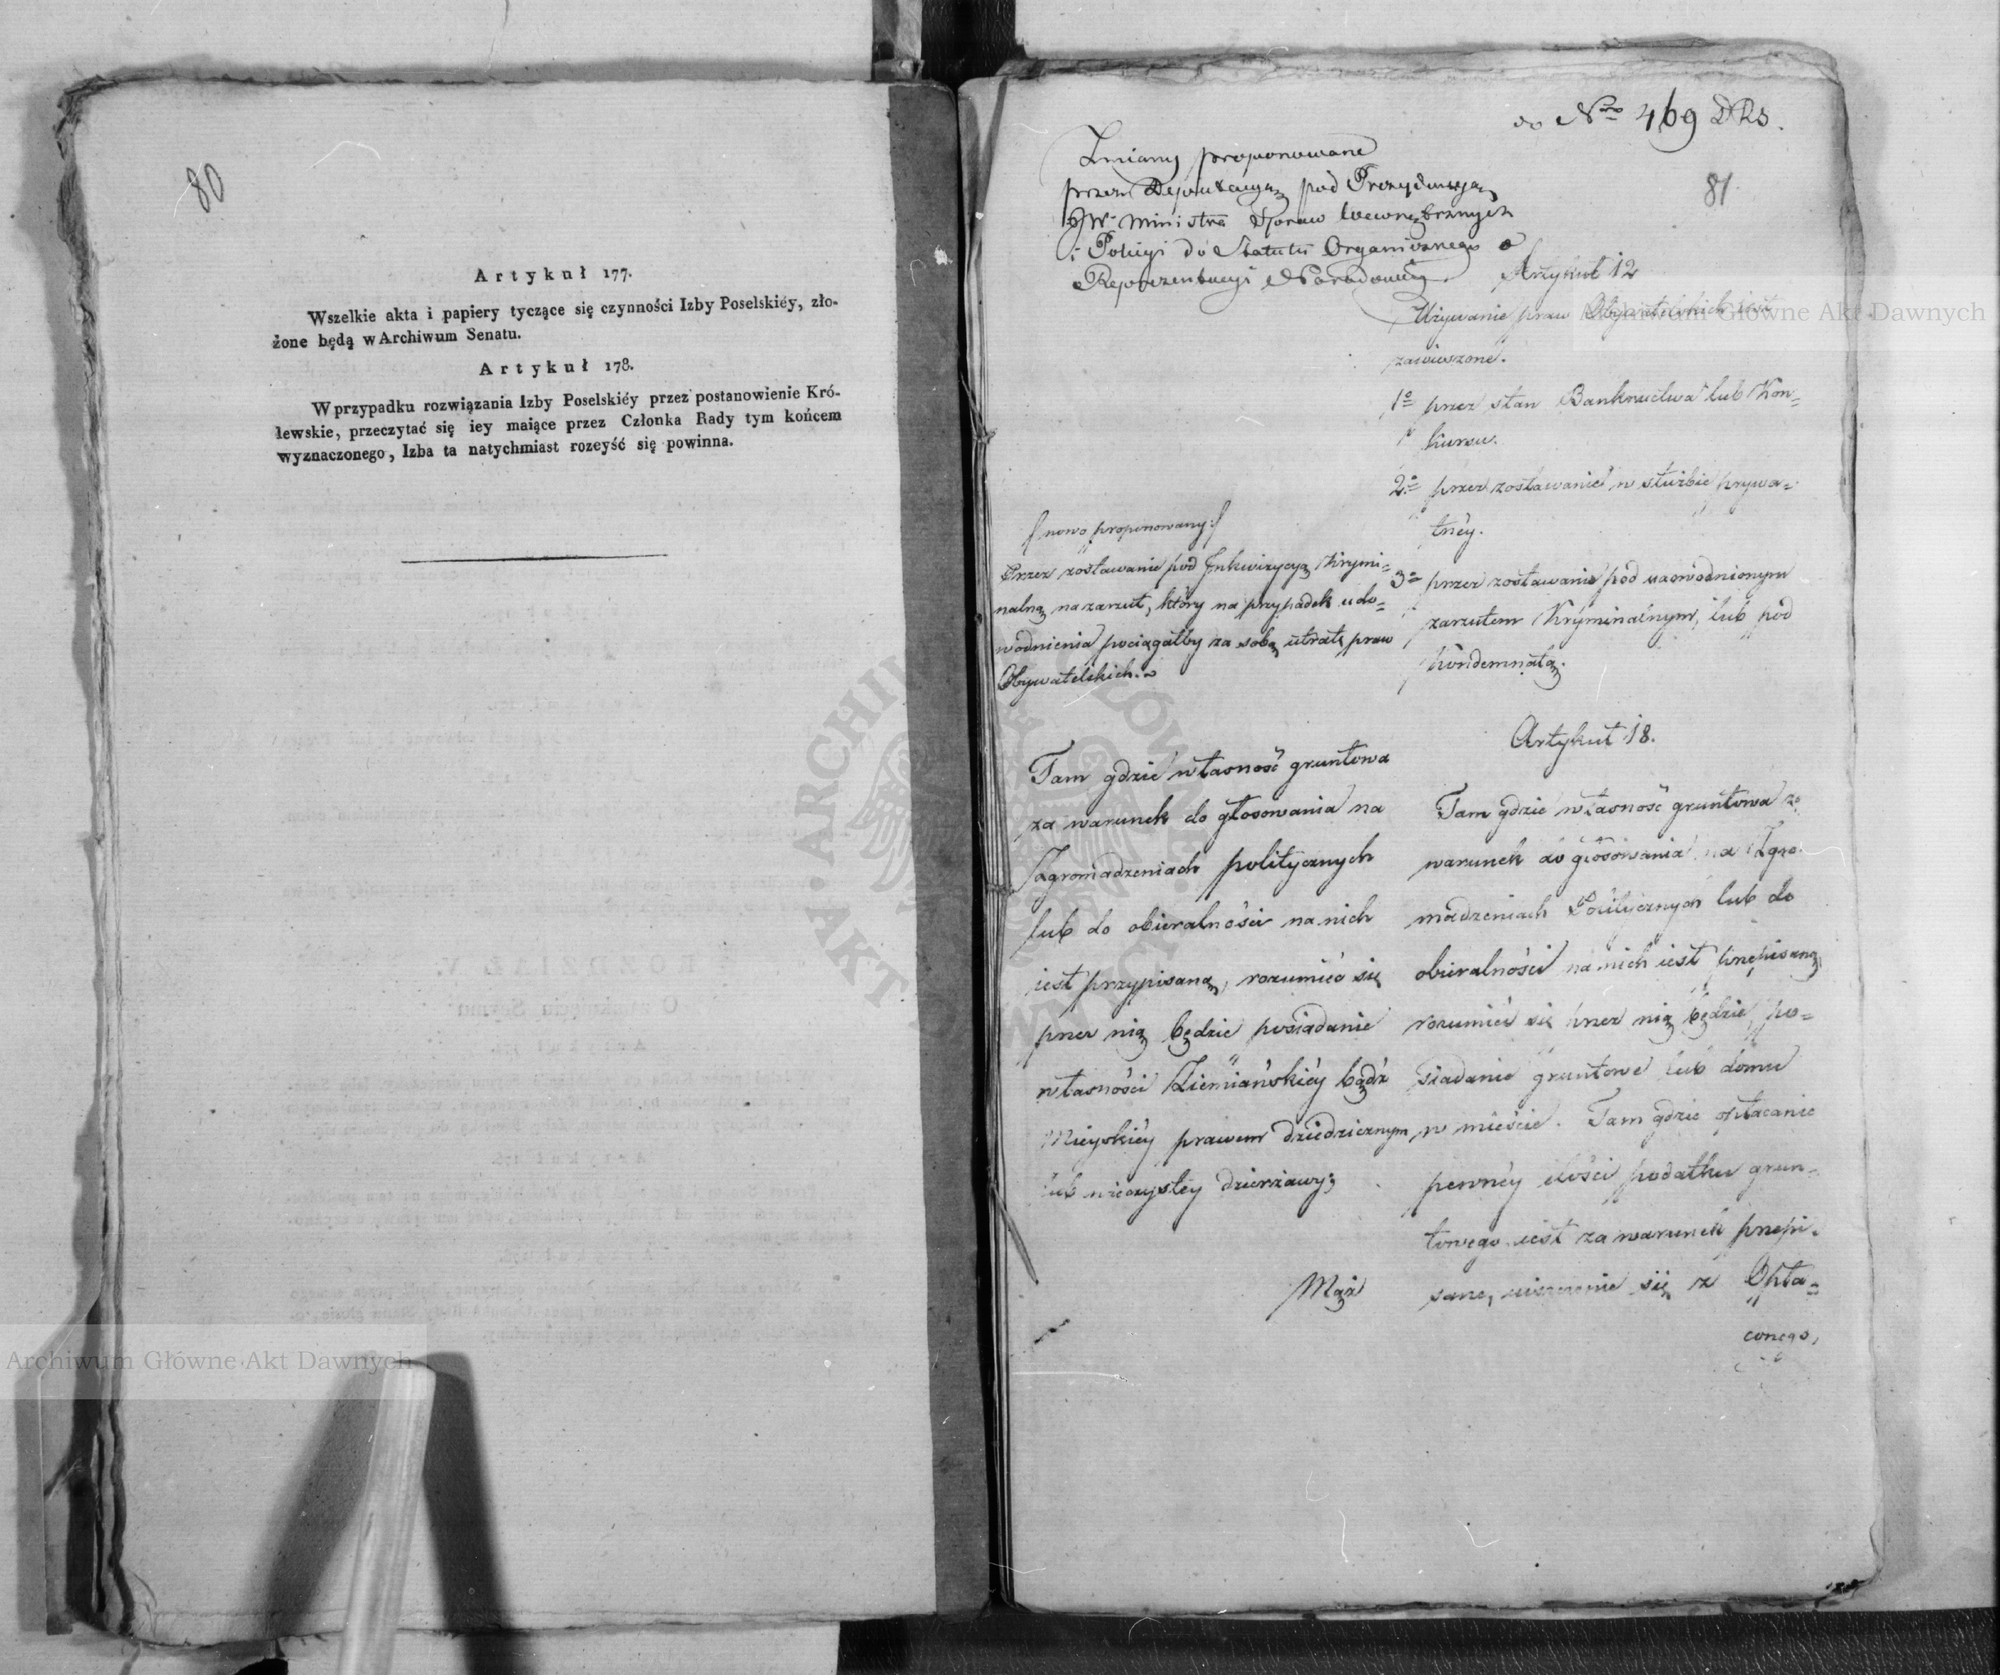 80
Artykuł 177.
Wszelkie akta i papiery tyczące się czynności Izby Poselskiéy, zło-
żone będą w Archiwum Senatu.
Artykuł 178.
W przypadku rozwiązania Izby Poselskiéy przez postanowienie Kró-
lewskie, przeczytać się iey maiące przez Członka Rady tym końcem
wyznaczonego, Izba ta natychmiast rozeyść się powinna.
do Nro 469 DRS.
81
Zmiany proponowane
przez Deputacyą pod Prezydencyą
JW. Ministra Spraw Wewnętrznych
i Policyi do Statutu Organicznego o
Reprezentacyi Narodowéy.
Artykuł 12
Używanie praw Obywatelskich iest
zawieszone.
1o przez stan Bankructwa lub Kon=
kursu.
2o przez zostawanie w służbie prywa=
tnéy.
3o przez zostawanie pod uaowodnionym
zarzutem Kryminalnym, lub pod
kondemnatą.
/nowo proponowany:/
Przez zostawanie pod Inkwizycyą Krymi=
nalną na zarzut, który na przypadek udo=
wodnienia pociągałby za sobą utratę praw
Obywatelskich.
Artykuł 18.
Tam gdzie własność gruntowa
za warunek do głosowania na
Zgromadzeniach politycznych
lub do obieralności na nich
iest przypisaną, rozumieć się
przez nią będzie posiadanie
własności Ziemiańskiéy bądź
Mieyskiéy prawem dziedzicznym
lub wieczystéy dzierżawy;
Mąż
Tam gdzie własność gruntowa za
warunek do głosowania na Zgro-
madzeniach Politycznych lub do
obieralności na nich iest przepisaną,
rozumieć się przez nią będzie, po=
siadanie gruntowe lub domu
w mieście. Tam gdzie opłacanie
pewnéy ilości podatku grun=
towego iest za warunek przepi=
sane, uiszczenie się z Opła=
conego,
Archiwum Główne Akt Dawnych
Archiwum Główne Akt Dawnych